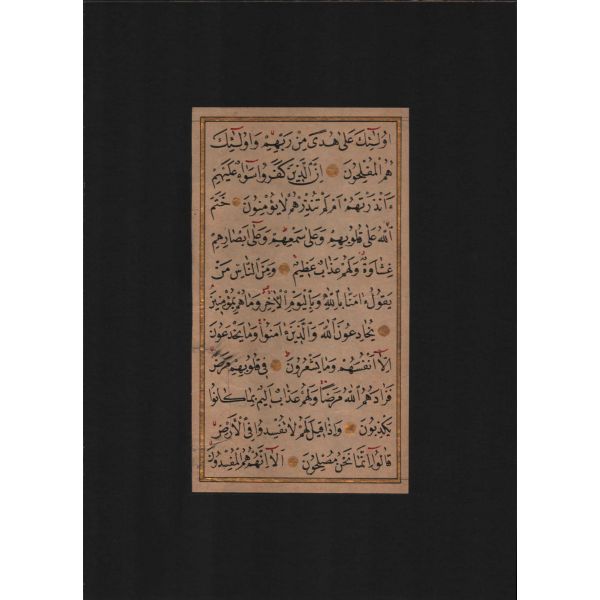 اُولٰٓئِكَ عَلٰى هُدًى مِنْ رَبِّهِمْ وَاُولٰٓئِكَ
هُمُ الْمُفْلِحُونَ اِنَّ الَّذِينَ كَفَرُوا سَوَآءٌ عَلَيْهِمْ
ءَاَنْذَرْتَهُمْ اَمْ لَمْ تُنْذِرْهُمْ لَا يُؤْمِنُونَ خَتَمَ
اللّٰهُ عَلٰى قُلُوبِهِمْ وَعَلٰى سَمْعِهِمْ وَعَلٰٓى اَبْصَارِهِمْ
غِشَاوَةٌ وَلَهُمْ عَذَابٌ عَظِيمٌ وَمِنَ النَّاسِ مَنْ
يَقُولُ اٰمَنَّا بِاللّٰهِ وَبِالْيَوْمِ الْاٰخِرِ وَمَا هُمْ بِمُؤْمِنِينَ
يُخَادِعُونَ اللّٰهَ وَالَّذِينَ اٰمَنُوا وَمَا يَخْدَعُونَ
اِلَّٓا اَنْفُسَهُمْ وَمَا يَشْعُرُونَ فِى قُلُوبِهِمْ مَرَضٌ
فَزَادَهُمُ اللّٰهُ مَرَضًا وَلَهُمْ عَذَابٌ اَلِيمٌ بِمَا كَانُوا
يَكْذِبُونَ وَاِذَا قِيلَ لَهُمْ لَا تُفْسِدُوا فِى الْاَرْضِ
قَالُٓوا اِنَّمَا نَحْنُ مُصْلِحُونَ اَلَٓا اِنَّهُمْ هُمُ الْمُفْسِدُونَ